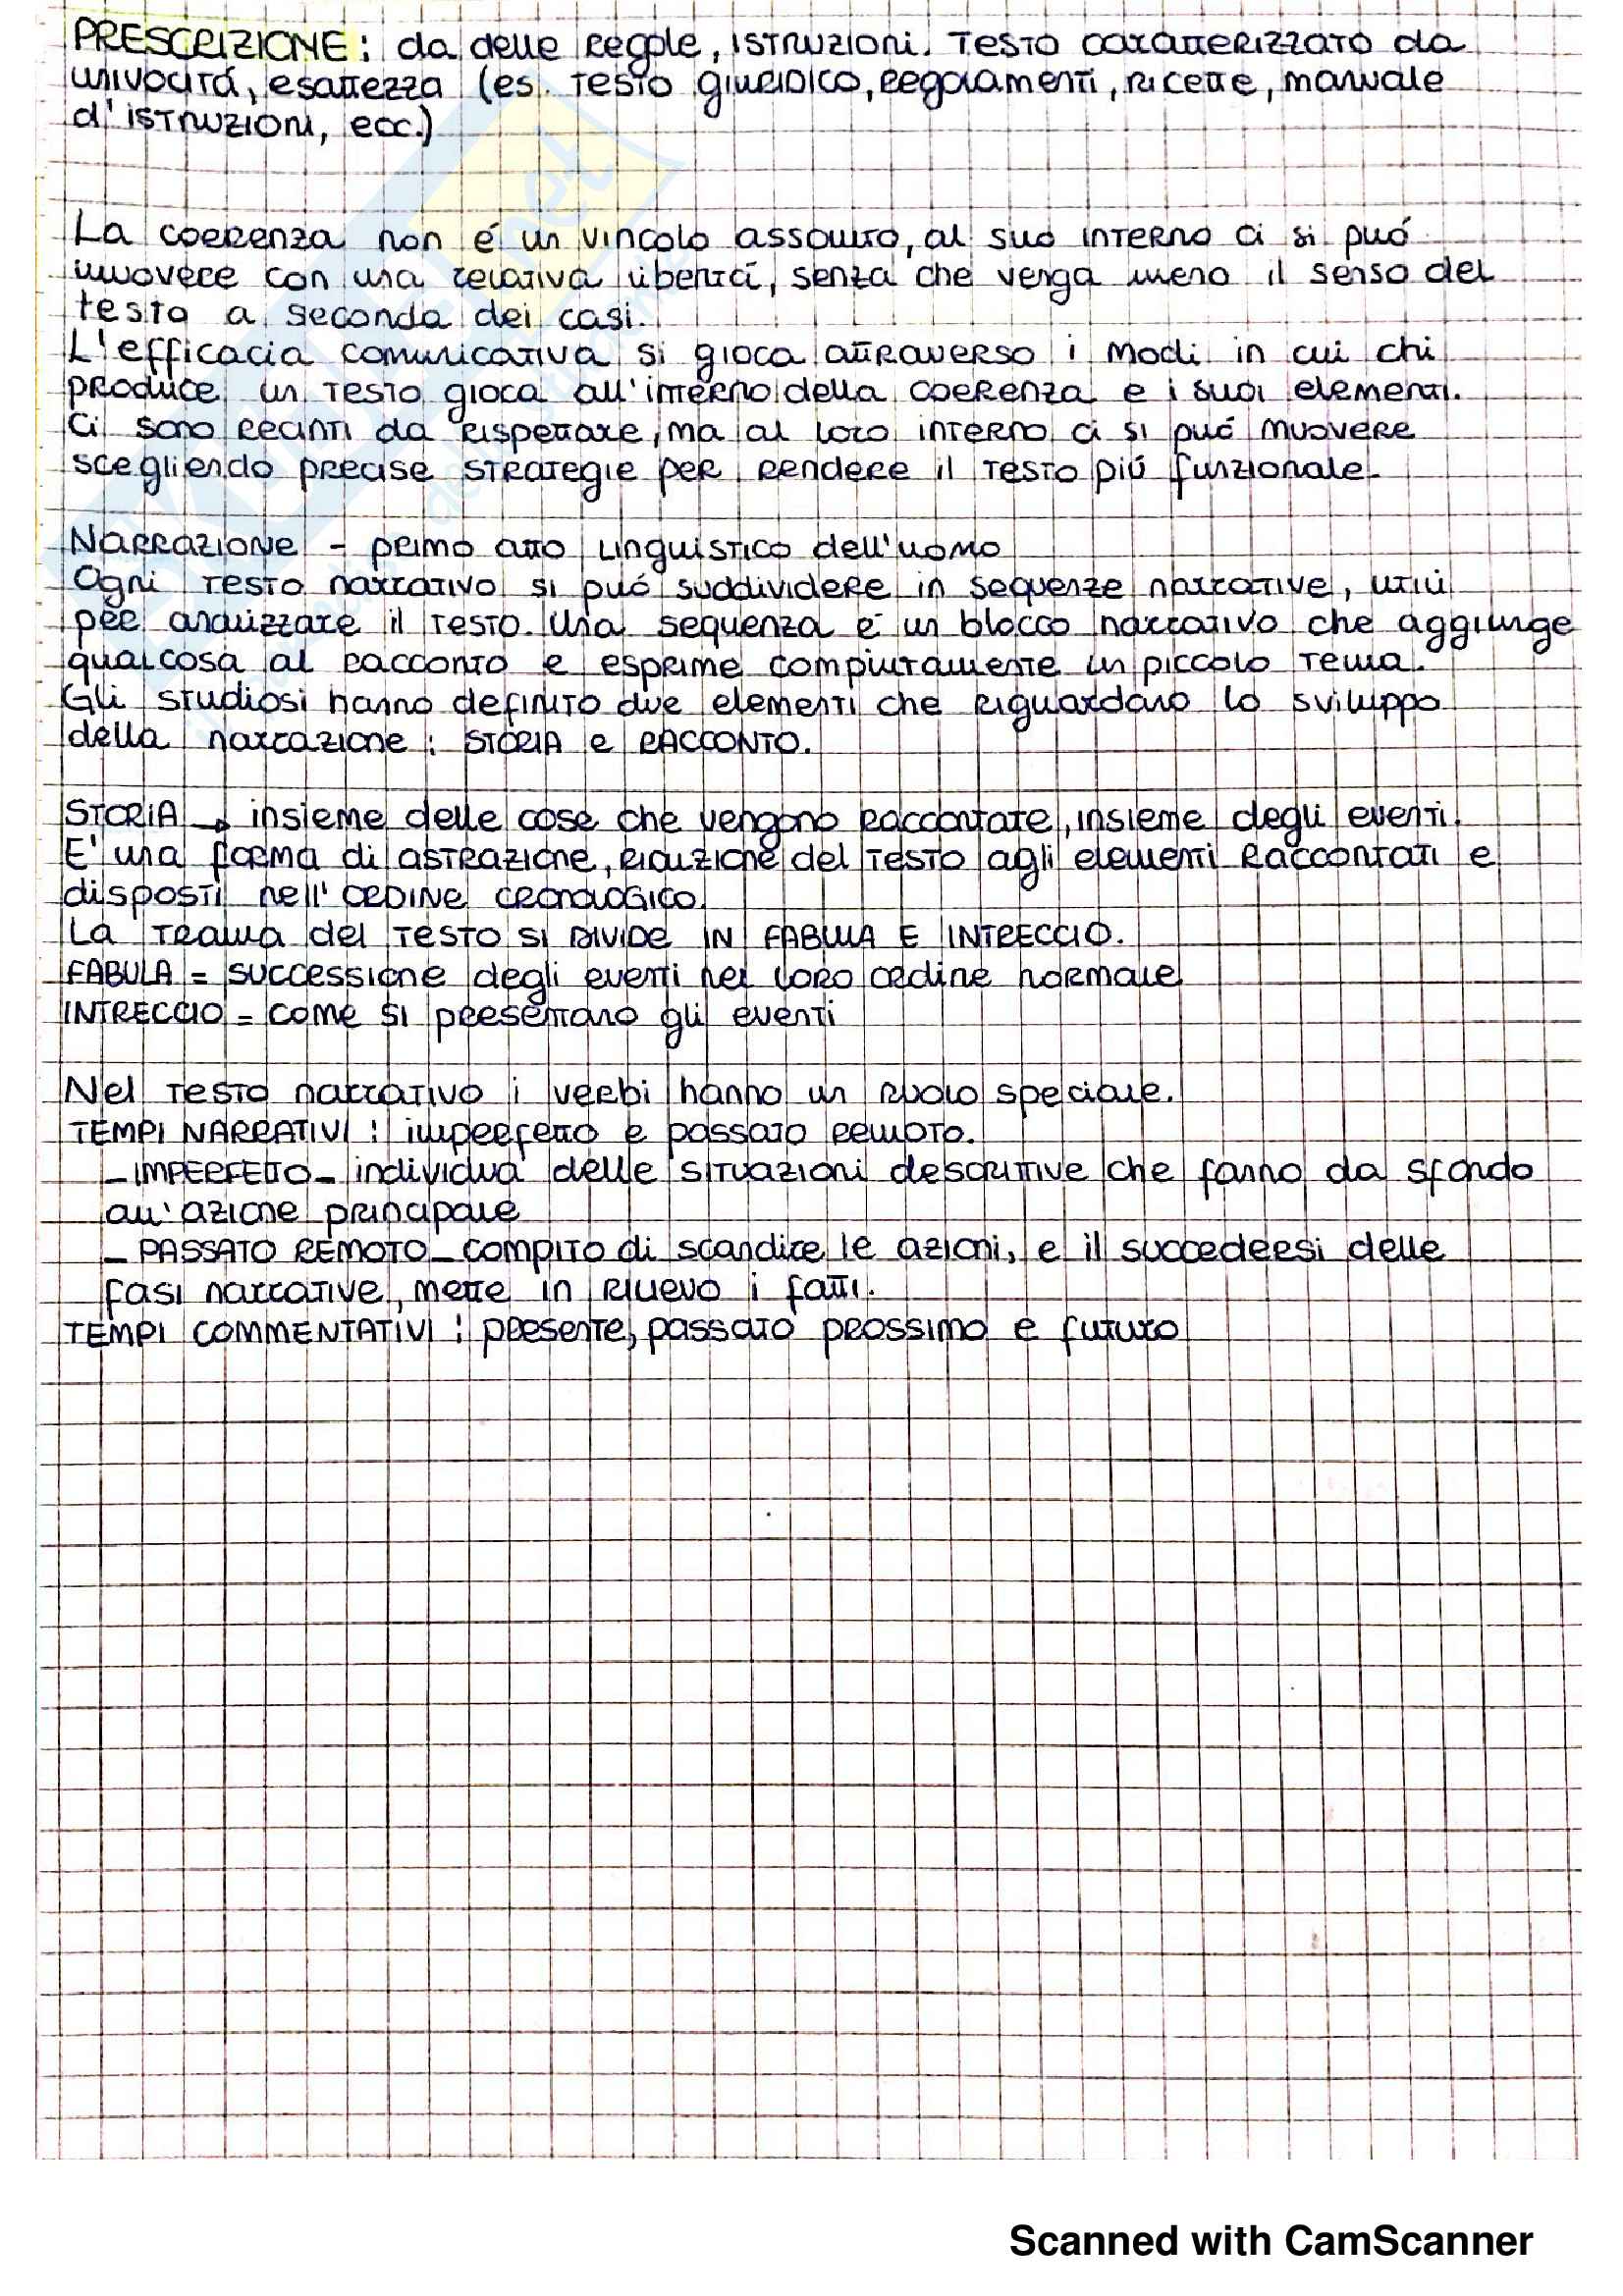 PRESCRIZIONE: da delle regole, istruzioni. Testo caratterizzato da
univocitá, esattezza (es. testo giuridico, regolamenti, ricette, manuale
d'istruzioni, ecc.)
La coerenza non é un vincolo assoluto, al suo interno ci si puó
muovere con una relativa libertá, senza che venga meno il senso del
testo a seconda dei casi.
L'efficacia comunicativa si gioca attraverso i modi in cui chi
produce un testo gioca all'interno della coerenza e i suoi elementi.
Ci sono recinti da rispettare, ma al loro interno ci si puó muovere
scegliendo precise strategie per rendere il testo piú funzionale.
NARRAZIONE - primo atto linguistico dell'uomo
Ogni testo narrativo si puó suddividere in sequenze narrative, utili
per analizzare il testo. Una sequenza é un blocco narrativo che aggiunge
qualcosa al racconto e esprime compiutamente un piccolo tema.
Gli studiosi hanno definito due elementi che riguardano lo sviluppo
della narrazione: STORIA e RACCONTO.
STORIA → insieme delle cose che vengono raccontate, insieme degli eventi.
E' una forma di astrazione, riduzione del testo agli elementi raccontati e
disposti nell'ORDINE CRONOLOGICO.
La trama del testo si DIVIDE IN FABULA E INTRECCIO.
FABULA = successione degli eventi nel loro ordine normale
INTRECCIO = come si presentano gli eventi
Nel testo narrativo i verbi hanno un ruolo speciale.
TEMPI NARRATIVI: imperfetto e passato remoto.
- IMPERFETTO - individua delle situazioni descrittive che fanno da sfondo
all'azione principale
- PASSATO REMOTO - compito di scandire le azioni, e il succedersi delle
fasi narrative, mette in rilievo i fatti.
TEMPI COMMENTATIVI: presente, passato prossimo e futuro
Scanned with CamScanner